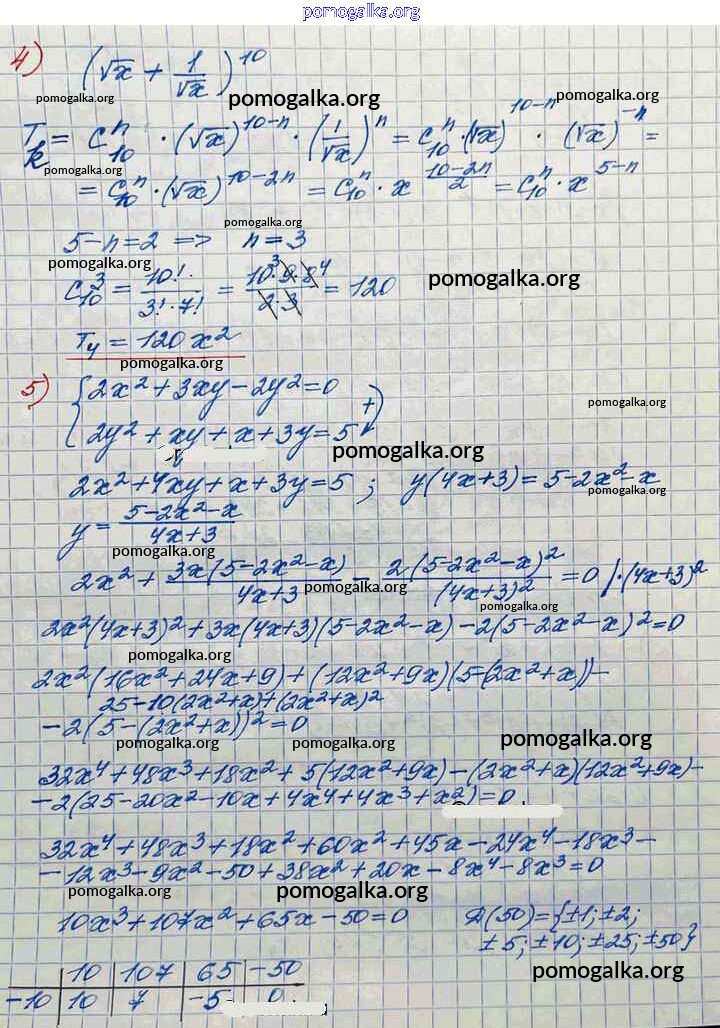 pomogalka.org
4) (√x + 1/√x)^10
pomogalka.org pomogalka.org pomogalka.org
T_k = C_10^n · (√x)^(10-n) · (1/√x)^n = C_10^n · (√x)^(10-n) · (√x)^(-n) =
pomogalka.org
= C_10^n · (√x)^(10-2n) = C_10^n · x^((10-2n)/2) = C_10^n · x^(5-n)
pomogalka.org
5-n=2 => n=3
pomogalka.org
C_10^3 = 10!/(3!·7!) = (10·9^3·8^4)/(2·3) = 120
pomogalka.org
T_4 = 120x^2
pomogalka.org
5) { 2x^2+3xy-2y^2=0
pomogalka.org
2y^2+xy+x+3y=5 } +
pomogalka.org
2x^2+4xy+x+3y=5; y(4x+3)=5-2x^2-x
pomogalka.org
y = (5-2x^2-x)/(4x+3)
pomogalka.org
2x^2 + 3x(5-2x^2-x)/(4x+3) - 2(5-2x^2-x)^2/(4x+3)^2 = 0 /·(4x+3)^2
pomogalka.org
pomogalka.org
2x^2(4x+3)^2+3x(4x+3)(5-2x^2-x)-2(5-2x^2-x)^2=0
pomogalka.org
2x^2(16x^2+24x+9)+(12x^2+9x)(5-(2x^2+x))-
25-10(2x^2+x)+(2x^2+x)^2
-2(5-(2x^2+x))^2=0
pomogalka.org pomogalka.org pomogalka.org
32x^4+48x^3+18x^2+5(12x^2+9x)-(2x^2+x)(12x^2+9x)-
-2(25-20x^2-10x+4x^4+4x^3+x^2)=0
32x^4+48x^3+18x^2+60x^2+45x-24x^4-18x^3-
-12x^3-9x^2-50+38x^2+20x-8x^4-8x^3=0
pomogalka.org pomogalka.org
10x^3+107x^2+65x-50=0 Д(50)={±1; ±2;
±5; ±10; ±25; ±50}
pomogalka.org
10 107 65 -50
-10 10 7 -5 0